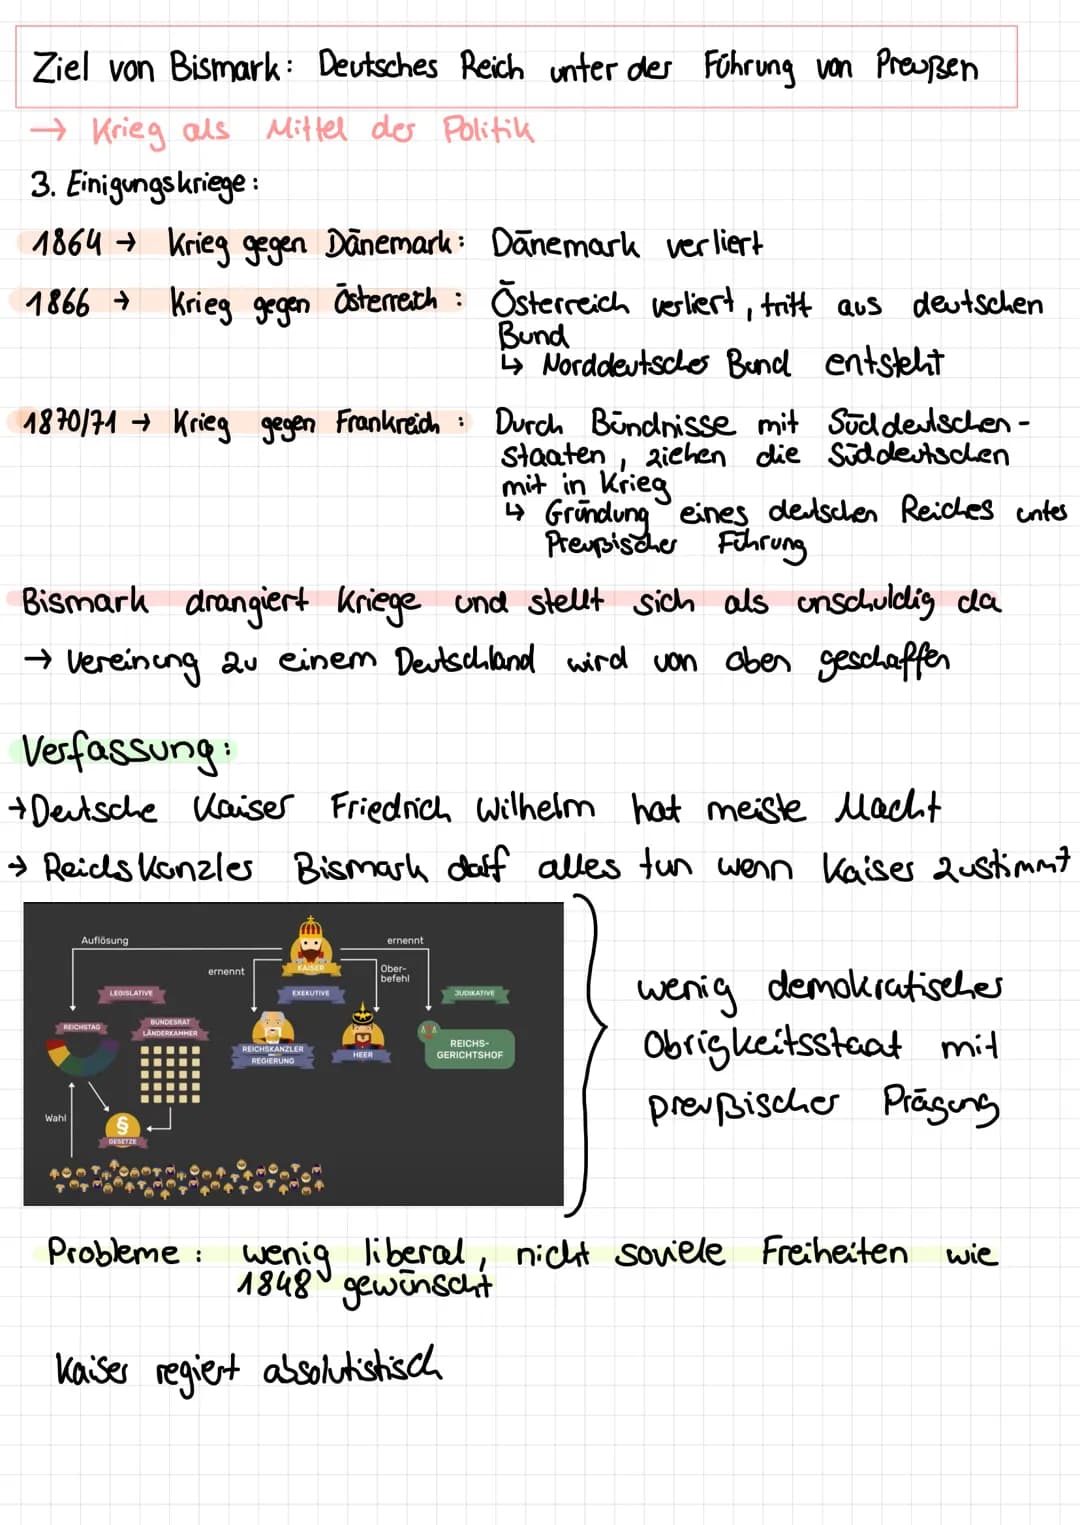 Ziel von Bismark: Deutsches Reich unter der Führung von Preußen
→ Krieg als Mittel der Politik
3. Einigungskriege:
1864 → Krieg gegen Dänemark: Dänemark verliert
1866 → Krieg gegen Österreich: Österreich verliert, tritt aus deutschen
Bund
↳ Norddeutscher Bund entsteht
1870/71 → Krieg gegen Frankreich: Durch Bündnisse mit Süddeutschen-
staaten, ziehen die Süddeutschen
mit in Krieg
↳ Gründung eines deutschen Reiches unter
Preußischer Führung
Bismark drangiert Kriege und stellt sich als unschuldig da
→ Vereinung zu einem Deutschland wird von oben geschaffen
Verfassung:
→ Deutsche Kaiser Friedrich Wilhelm hat meiste Macht
→ Reichskanzler Bismark darf alles tun wenn Kaiser zustimmt
Auflösung
ernennt
ernennt
KAISER
Ober-
befehl
LEGISLATIVE
EXEKUTIVE
JUDIKATIVE
REICHSTAG
BUNDESRAT
LÄNDERKAMMER
REICHSKANZLER
REGIERUNG
HEER
REICHS-
GERICHTSHOF
Wahl
§
GESETZE
wenig demokratischer
Obrigkeitsstaat mit
preußischer Prägung
Probleme: wenig liberal, nicht soviele Freiheiten wie
1848 gewünscht
Kaiser regiert absolutistisch